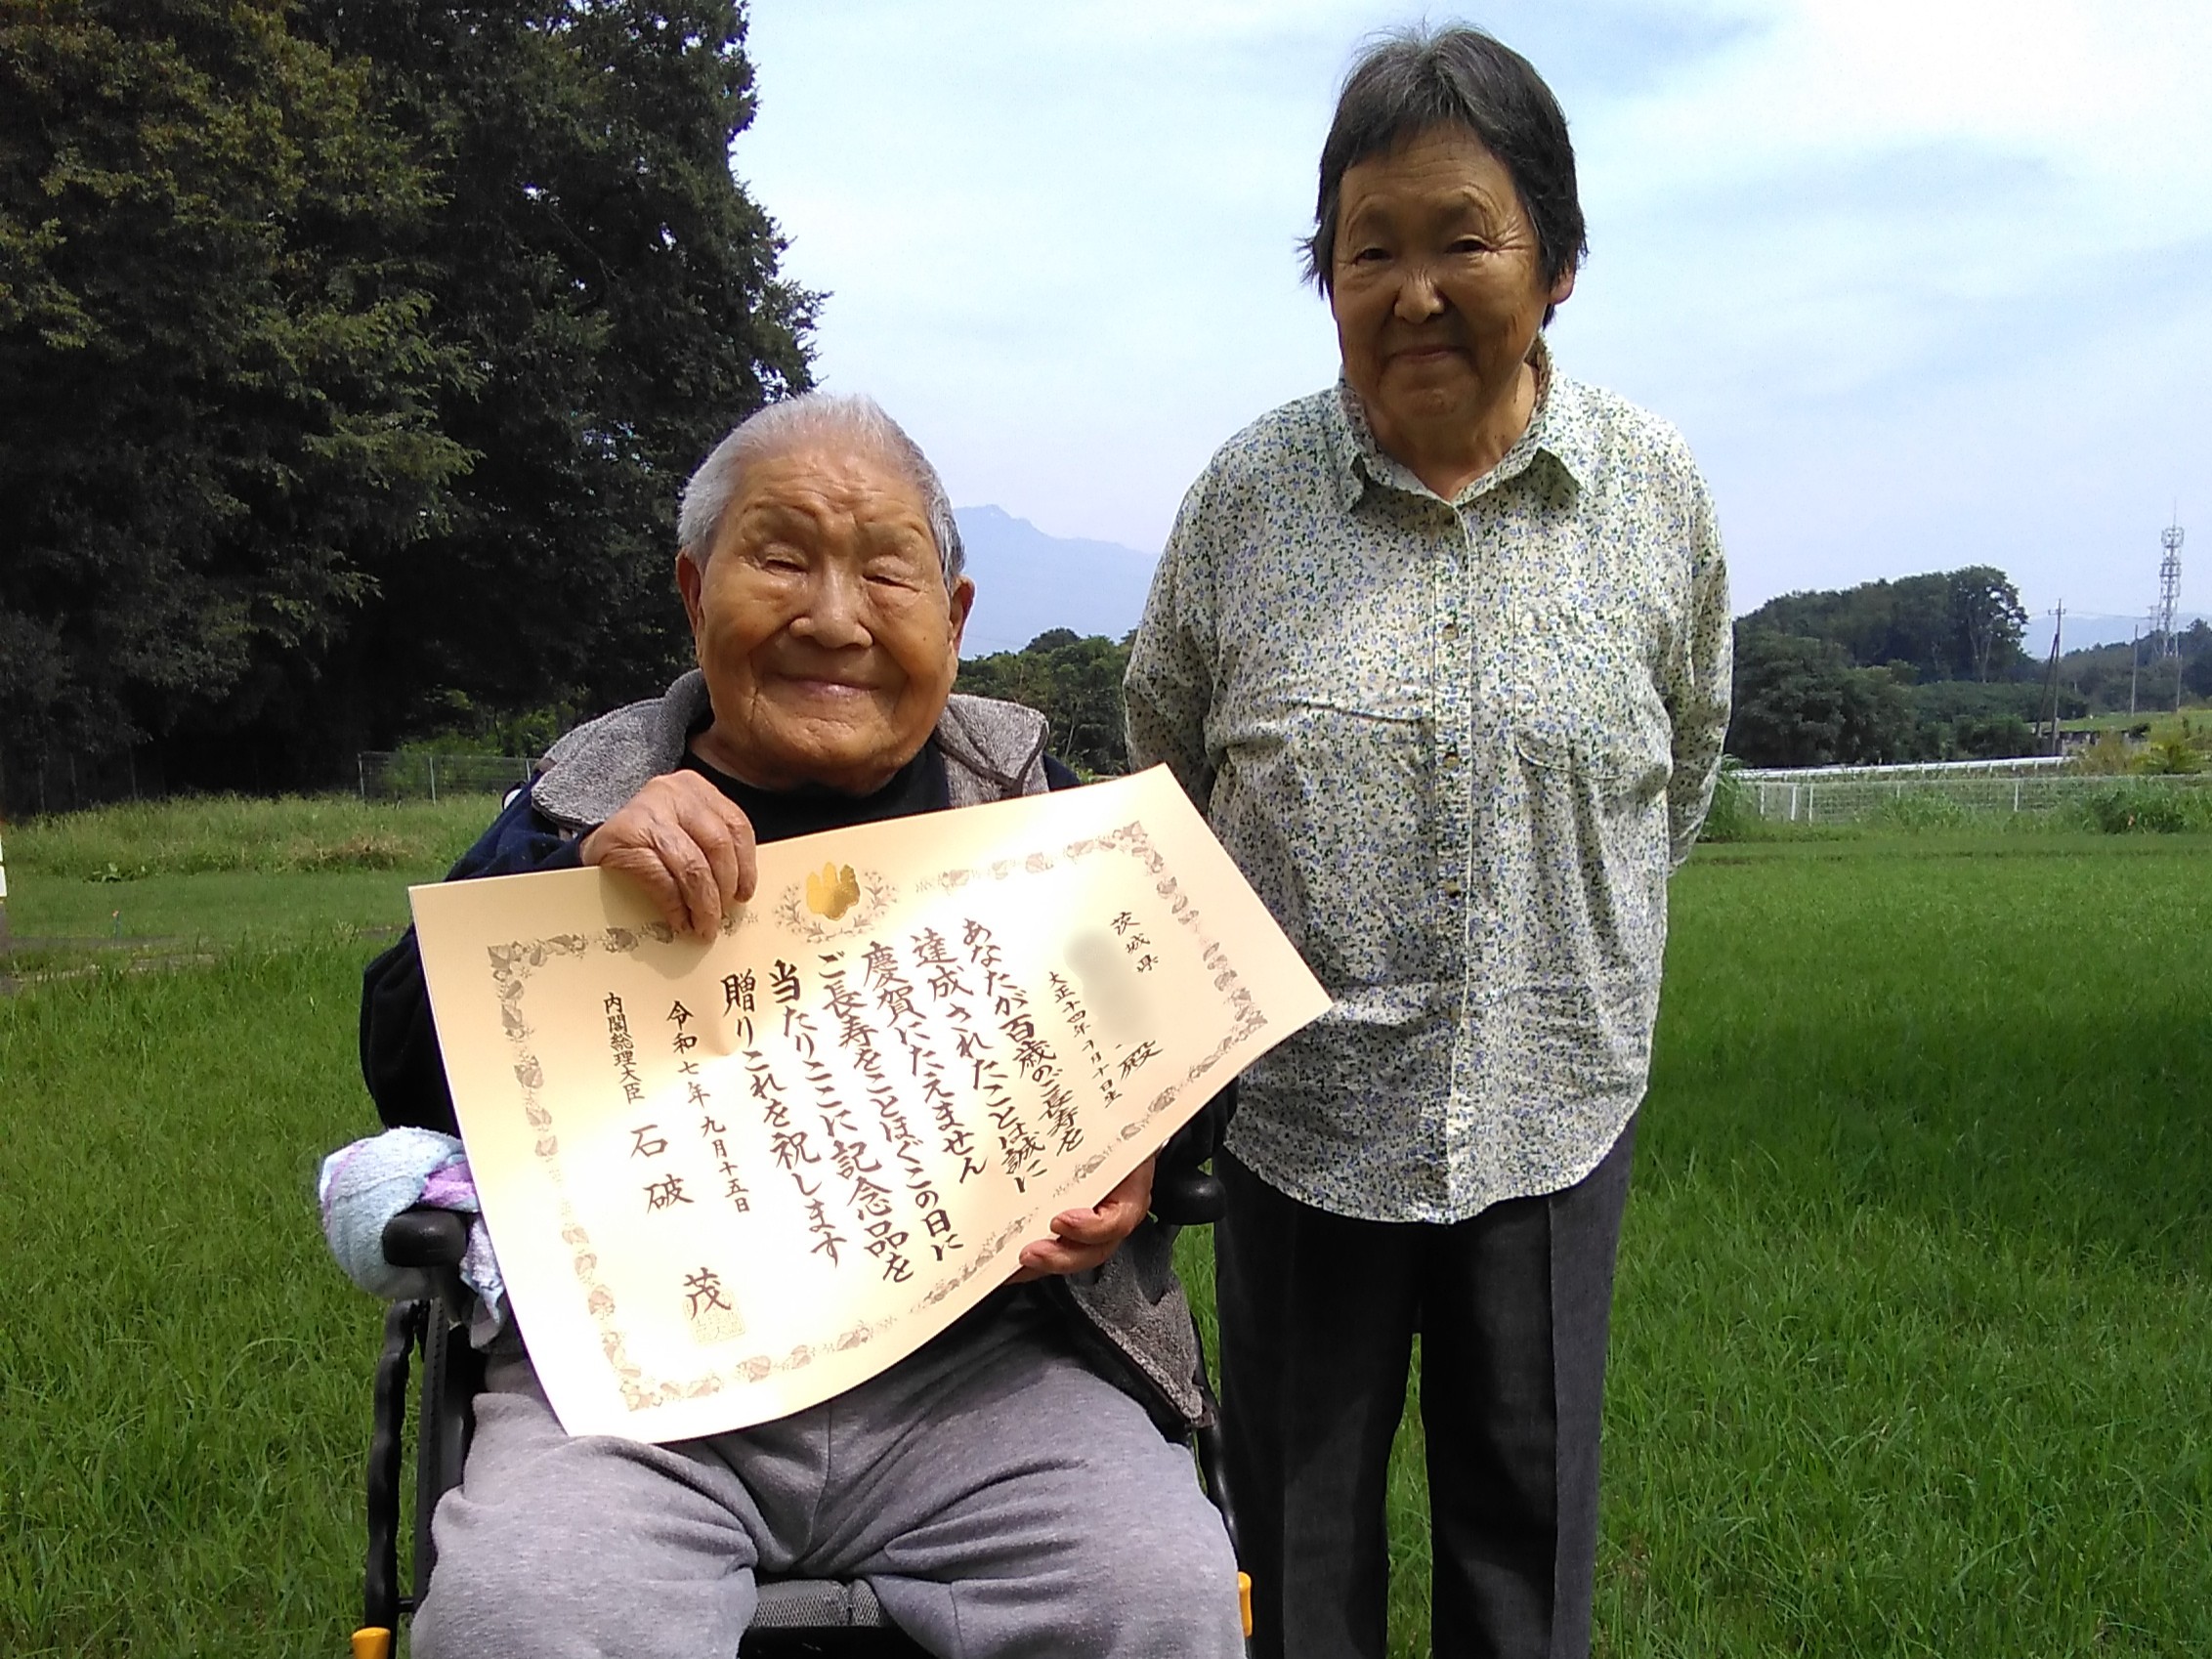 茨城県
殿
大正十四年 月十日生
あなたが百歳のご長寿を
達成されたことは誠に
慶賀にたえません
ご長寿をことほぐこの日に
当たりここに記念品を
贈りこれを祝します
令和七年九月十五日
内閣総理大臣 石破 茂